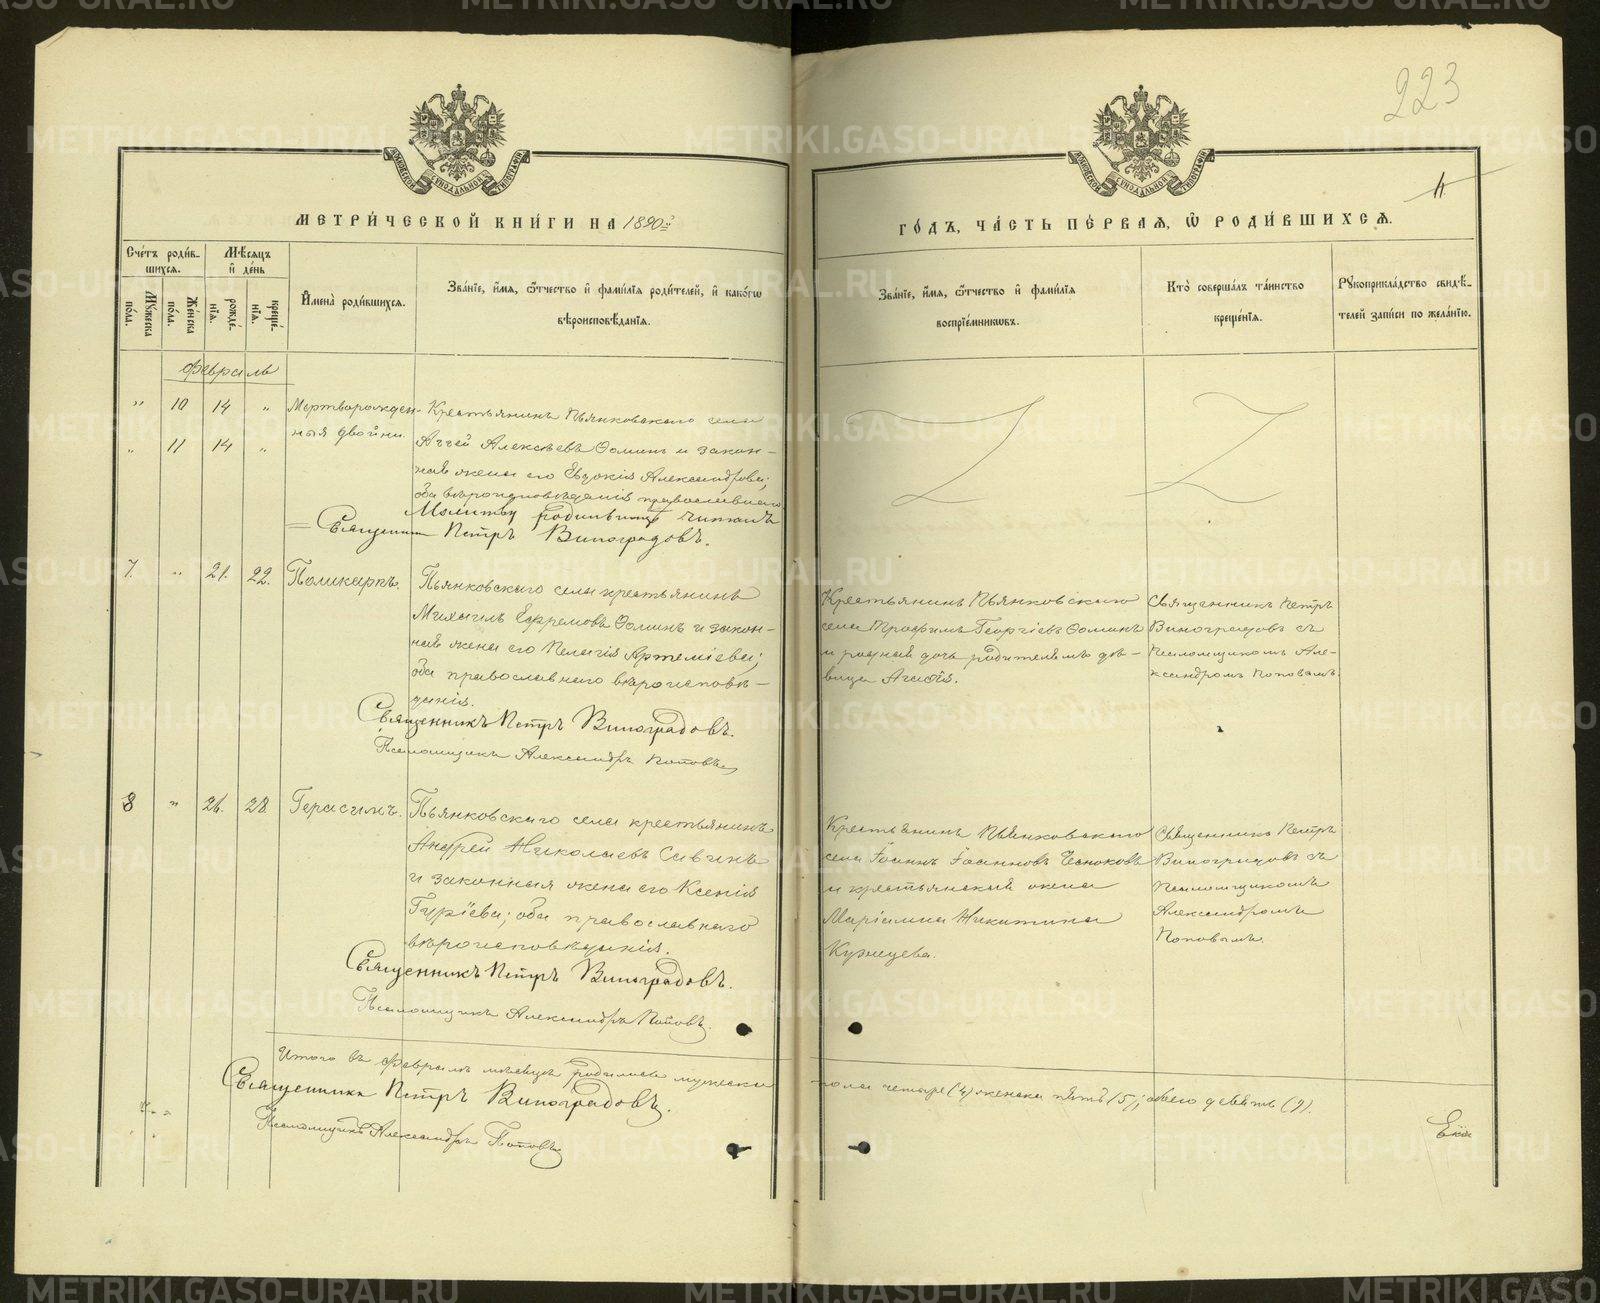 223
МЕТРИ́ЧЕСКОЙ КНИ́ГИ НА 1890й
ГО́ДЪ, ЧА́СТЬ ПЕ́РВАЯ, Ѡ РОДИ́ВШИХСѦ.
Сче́тъ роди́в-
шихся.
Мѣ́сяцъ
и҆ де́нь
Мꙋ́жеска по́ла.
Же́нска по́ла.
рожде́нїя.
креще́нїя.
И҆мена̀ роди́вшихся.
Зва́нїе, и҆́мя, ѻ҆́тчество и҆ фами́лїя роди́телей, и҆ како́гѡ
вѣроисповѣ́данїя.
Зва́нїе, и҆́мя, ѻ҆́тчество и҆ фами́лїя
воспрїе́мникѡвъ.
Кто̀ соверша́лъ та́инство
креще́нїя.
Рꙋкоприкла́дство свидѣ́-
телей за́писи по жела́нїю.
Февраль
" 10 14 "
" 11 14 "
Мертворожден-
ныя двойни.
Крестьянинъ Пьянковскаго села
Аггей Алексѣевъ Ѳоминъ и закон-
ная жена его Евдокія Александрова;
оба вѣроисповѣданія православнаго
Молитву родильницѣ читалъ
Священникъ Петръ Виноградовъ.
7. " 21. 22. Поликарпъ.
Пьянковскаго села крестьянинъ
Михаилъ Ефремовъ Ѳоминъ и закон-
ная жена его Пелагія Артеміева;
оба православнаго вѣроисповѣ-
данія.
Священникъ Петръ Виноградовъ.
Псаломщикъ Александръ Поповъ
Крестьянинъ Пьянковскаго
села Трофимъ Георгіевъ Ѳоминъ
и родная дочь родителямъ дѣ-
вица Агаѳія.
Священникъ Петръ
Виноградовъ съ
псаломщикомъ Але-
ксандромъ Поповымъ
8 " 26. 28. Герасимъ.
Пьянковскаго села крестьянинъ
Андрей Николаевъ Савинъ
и законная жена его Ксенія
Гуріева; оба православнаго
вѣроисповѣданія.
Священникъ Петръ Виноградовъ.
Псаломщикъ Александръ Поповъ.
Крестьянинъ Пьянковскаго
села Іоаннъ Іоанновъ Чесноковъ
и крестьянская жена
Маріамна Никитина
Кузнецова.
Священникъ Петръ
Виноградовъ съ
Псаломщикомъ
Александромъ
Поповымъ.
Итого въ Февралѣ мѣсяцѣ родилось мужеска пола четыре (4) женска пять (5); обоего девять (9).
Священникъ Петръ Виноградовъ.
Псаломщикъ Александръ Поповъ
METRIKI.GASO-URAL.RU